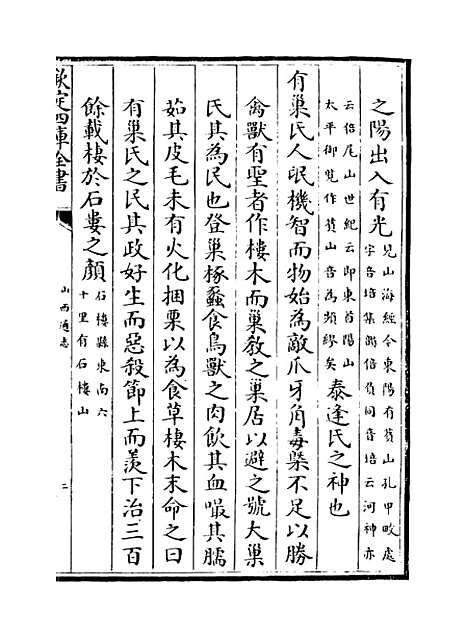 之陽出入有光見山海經今東陽有萯山孔甲畋處
字音培集韻倍負同音培云河神亦
云倍尾山世紀云即東首陽山
太平御覽作萯山音為頻繆矣泰逢氏之神也
有巢氏人氓機智而物始為敵爪牙角毒槩不足以勝
禽獸有聖者作樓木而巢教之巢居以避之號大巢
氏其為民也登巢椓蠡食鳥獸之肉飲其血嘬其臑
茹其皮毛未有火化捆栗以為食草棲木末命之曰
有巢氏之民其政好生而惡殺節上而羨下治三百
餘載棲於石婁之顏石樓縣東南六
十里有石樓山
欽定四庫全書
山西通志
二